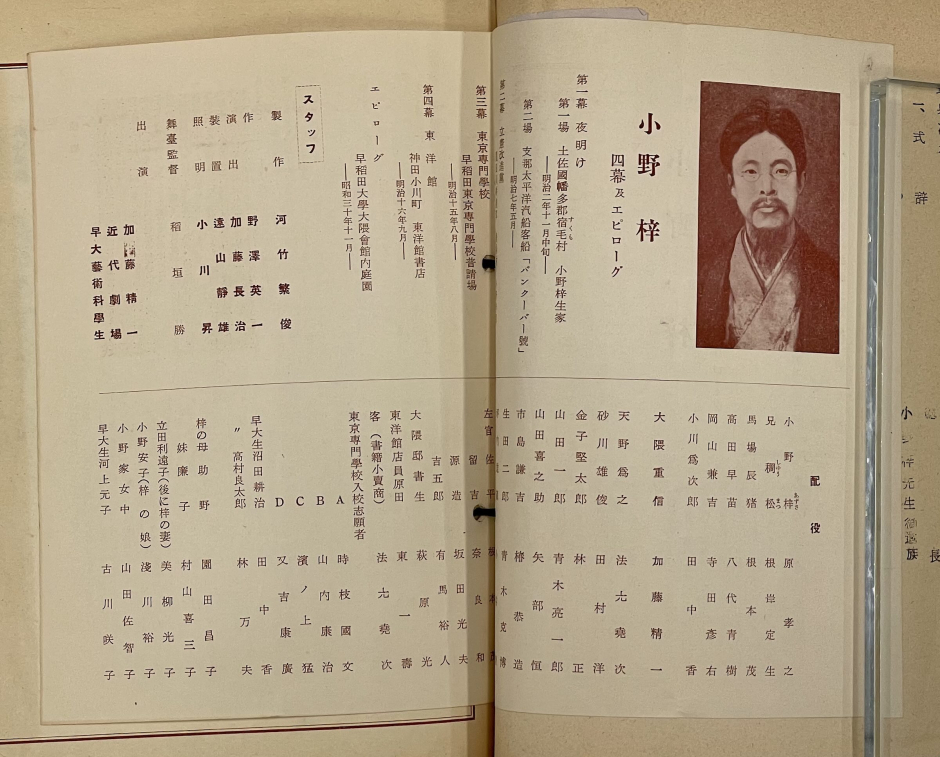 小野梓
四幕及エピローグ
第一幕 夜明け
第一場 土佐國幡多郡宿毛村 小野梓生家
すくも
――明治二年十一月中旬――
第二場 支那太平洋汽船客船「バンクーバー號」
――明治七年五月――
第二幕 立憲改進黨
第三幕 東京專門學校
早稻田東京專門學校普請場
――明治十五年八月――
第四幕 東洋館
神田小川町 東洋館書店
――明治十六年九月――
エピローグ
早稻田大學大隈會館内庭園
――昭和三十年十一月――
スタッフ
製作 河竹繁俊
作 野澤英一
演出 加藤長治
裝置 遠山靜雄
照明 小川昇
舞臺監督 稻垣勝
出演 加藤精一
近代劇場
早大藝術科學生
配役
小野梓 原孝之
あずさ
兄 稠松 根岸定生
しげまつ
馬場辰猪 根本茂
高田早苗 八代青樹
岡山兼吉 寺田彦右
小川爲次郎 田中香
大隈重信 加藤精一
天野爲之 法亢堯次
砂川雄俊 田村洋
金子堅太郎 林正
山田一郎 青木亮一郎
山田喜之助 矢部恒
市島謙吉 椿恭造
生田二郎
左官 佐平
留吉 奈良和
源造 坂田光夫
吉五郎 有馬裕人
大隈邸書生 萩原光
東洋館店員原田 東一壽
客(書籍小賣商) 法亢堯次
東京專門學校入校志願者
A 時枝國文
B 山内康治
C 濱ノ上猛
D 又吉康廣
早大生沼田耕治 田中香
〃 高村良太郎 林万夫
梓の母助野 園田昌子
妹廉子 村山喜三子
立田利遠子(後に梓の妻) 美柳光子
小野安子(梓の娘) 淺川裕子
小野家女中 山田佐智子
早大生河上元子 古川咲子
一、式辭